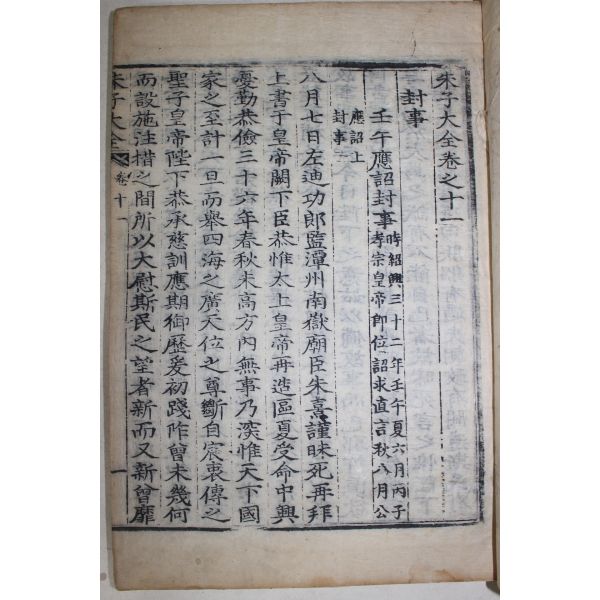 朱子大全卷之十一
封事
壬午應詔封事時紹興三十二年壬午夏六月丙子
孝宗皇帝即位詔求直言秋八月公
應詔上
封事
八月七日左迪功郎監潭州南嶽廟臣朱熹謹昧死再拜
上書于皇帝闕下臣恭惟太上皇帝再造區夏受命中興
憂勤恭儉三十六年春秋未高方內無事乃深惟天下國
家之至計一旦而舉四海之廣天位之尊斷自宸衷傳之
聖子皇帝陛下恭承慈訓應期御歷爰初踐阼曾未幾何
而設施注措之間所以大慰斯民之望者新而又新曾靡
朱子大全 卷十一 一